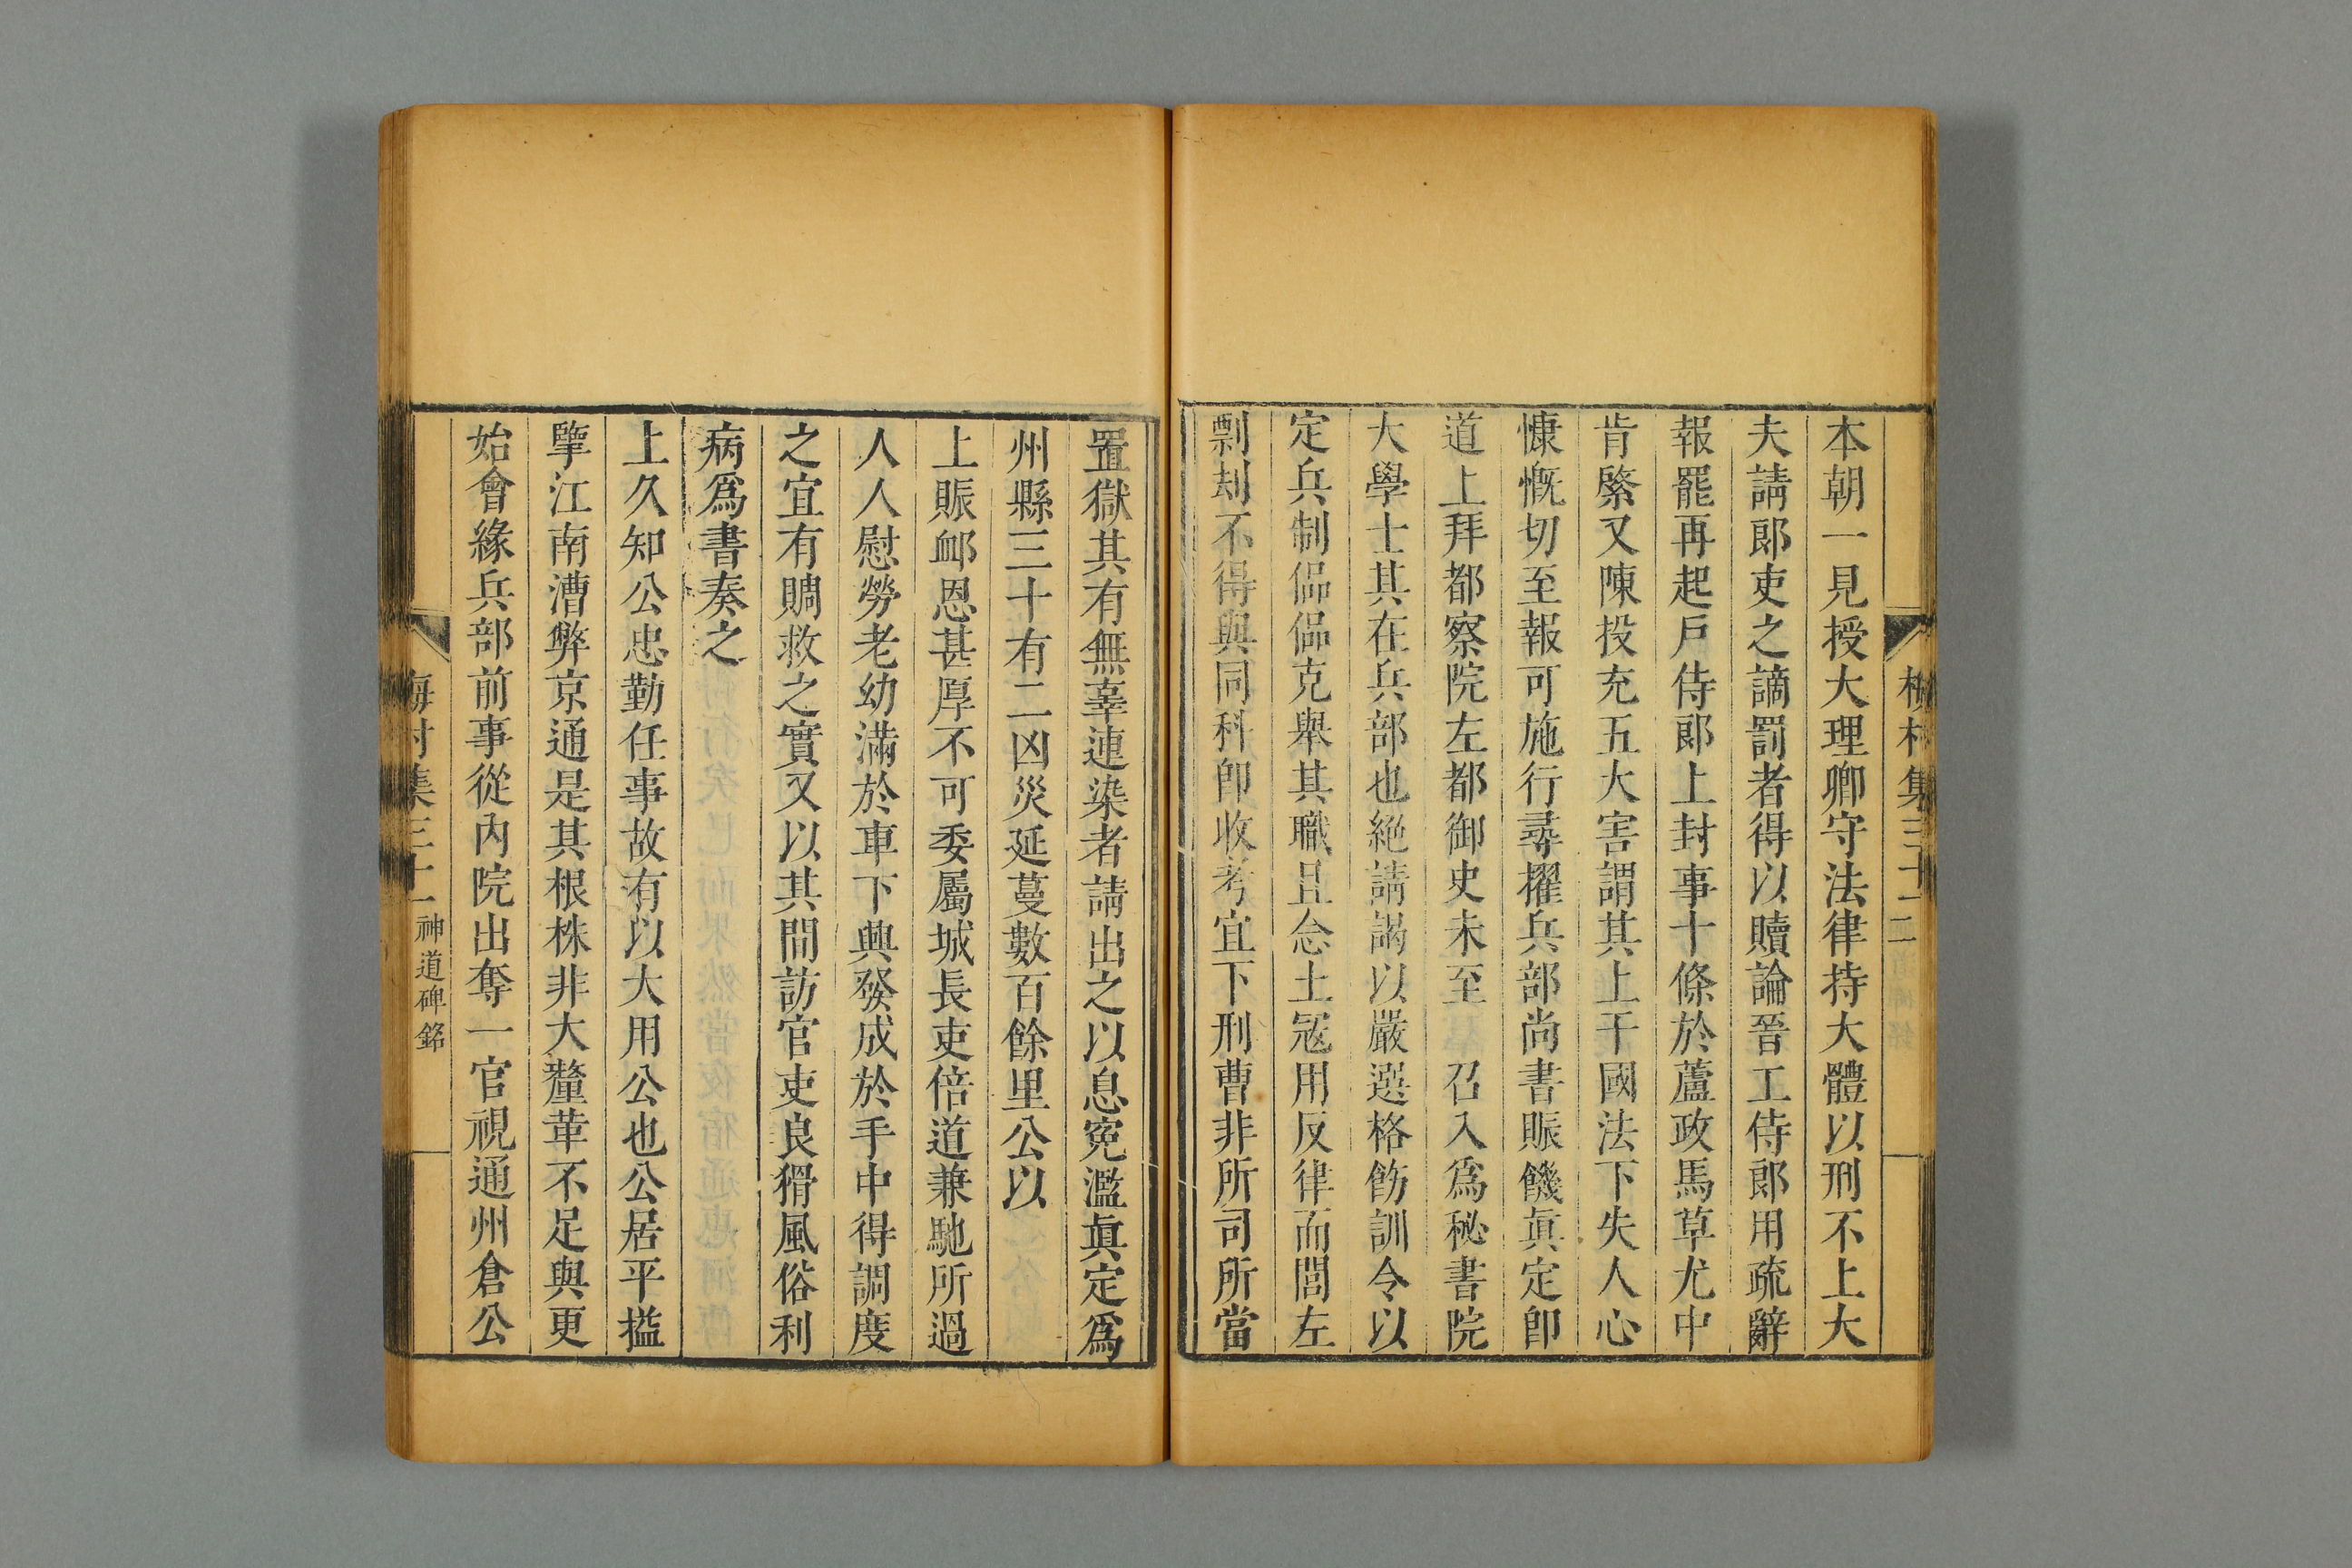 本朝一見授大理卿守法律持大體以刑不上大
夫請郎吏之謫罰者得以贖論晉工侍郎用疏辭
報罷再起戶侍郎上封事十條於蘆政馬草尤中
肯綮又陳投充五大害謂其上干國法下失人心
慷慨切至報可施行尋擢兵部尚書賑饑真定卽
道上拜都察院左都御史未至 召入爲秘書院
大學士其在兵部也絶請謁以嚴選格飭訓令以
定兵制偘偘克舉其職且念土冦用反律而閭左
剽刦不得與同科卽收考宜下刑曹非所司所當
置獄其有無辜連染者請出之以息寃濫眞定爲
州縣三十有二凶災延蔓數百餘里公以
上賑卹恩甚厚不可委屬城長吏倍道兼馳所過
人人慰勞老幼滿於車下興發成於手中得調度
之宜有賙救之實又以其間訪官吏良猾風俗利
病爲書奏之
上久知公忠勤任事故有以大用公也公居平搤
擥江南漕弊京通是其根株非大釐革不足與更
始會緣兵部前事從內院出奪一官視通州倉公
梅村集三十二 神道碑銘